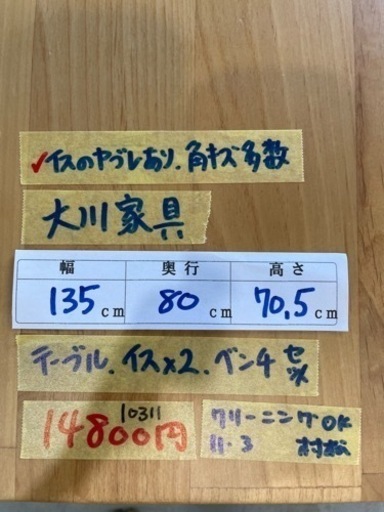 ✓イスのヤブレあり、角キズ多数
大川家具
幅 奥行 高さ
135cm 80cm 70.5cm
テーブル、イスx2、ベンチセット
10311
14800円
クリーニングOK
11.3 村松